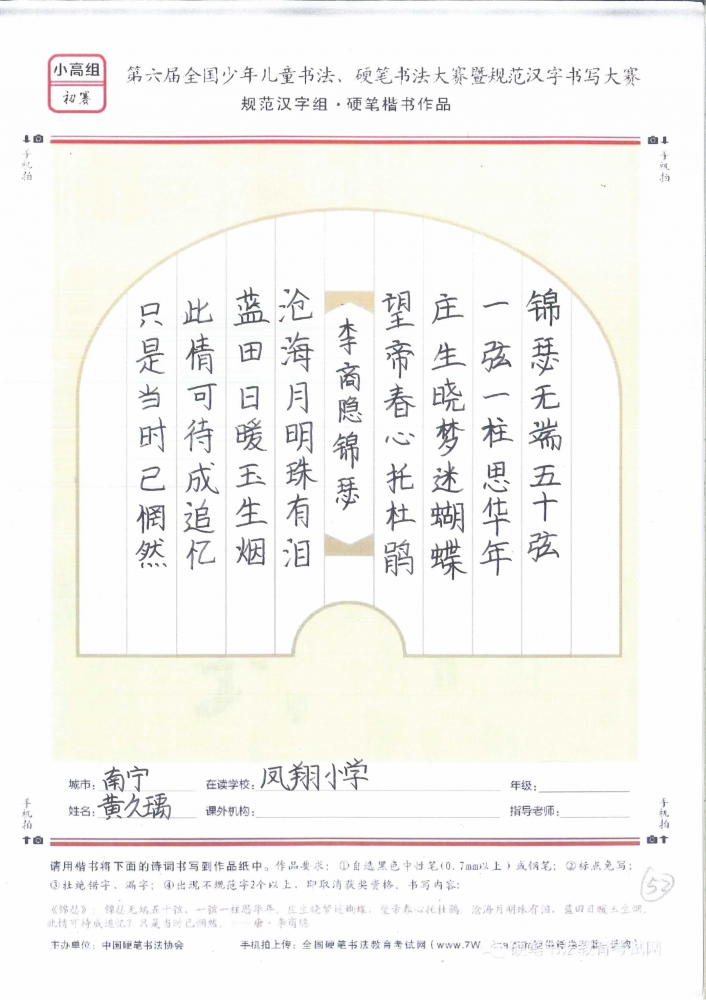 小高组
初赛
第六届全国少年儿童书法、硬笔书法大赛暨规范汉字书写大赛
规范汉字组·硬笔楷书作品
手机拍
手机拍
锦瑟无端五十弦
一弦一柱思华年
庄生晓梦迷蝴蝶
望帝春心托杜鹃
李商隐锦瑟
沧海月明珠有泪
蓝田日暖玉生烟
此情可待成追忆
只是当时已惘然
城市：南宁 在读学校：凤翔小学 年级：
姓名：黄久瑀 课外机构： 指导老师：
手机拍
手机拍
请用楷书将下面的诗词书写到作品纸中。作品要求：①自选黑色中性笔(0.7mm以上)或钢笔；②标点免写；
③杜绝错字、漏字；④出现不规范字2个以上，即取消获奖资格。书写内容：
52
《锦瑟》：锦瑟无端五十弦，一弦一柱思华年。庄生晓梦迷蝴蝶，望帝春心托杜鹃。沧海月明珠有泪，蓝田日暖玉生烟。
此情可待成追忆？只是当时已惘然。——唐·李商隐
主办单位：中国硬笔书法协会 手机拍上传：全国硬笔书法教育考试网(www.7W
硬笔书法教育考试网